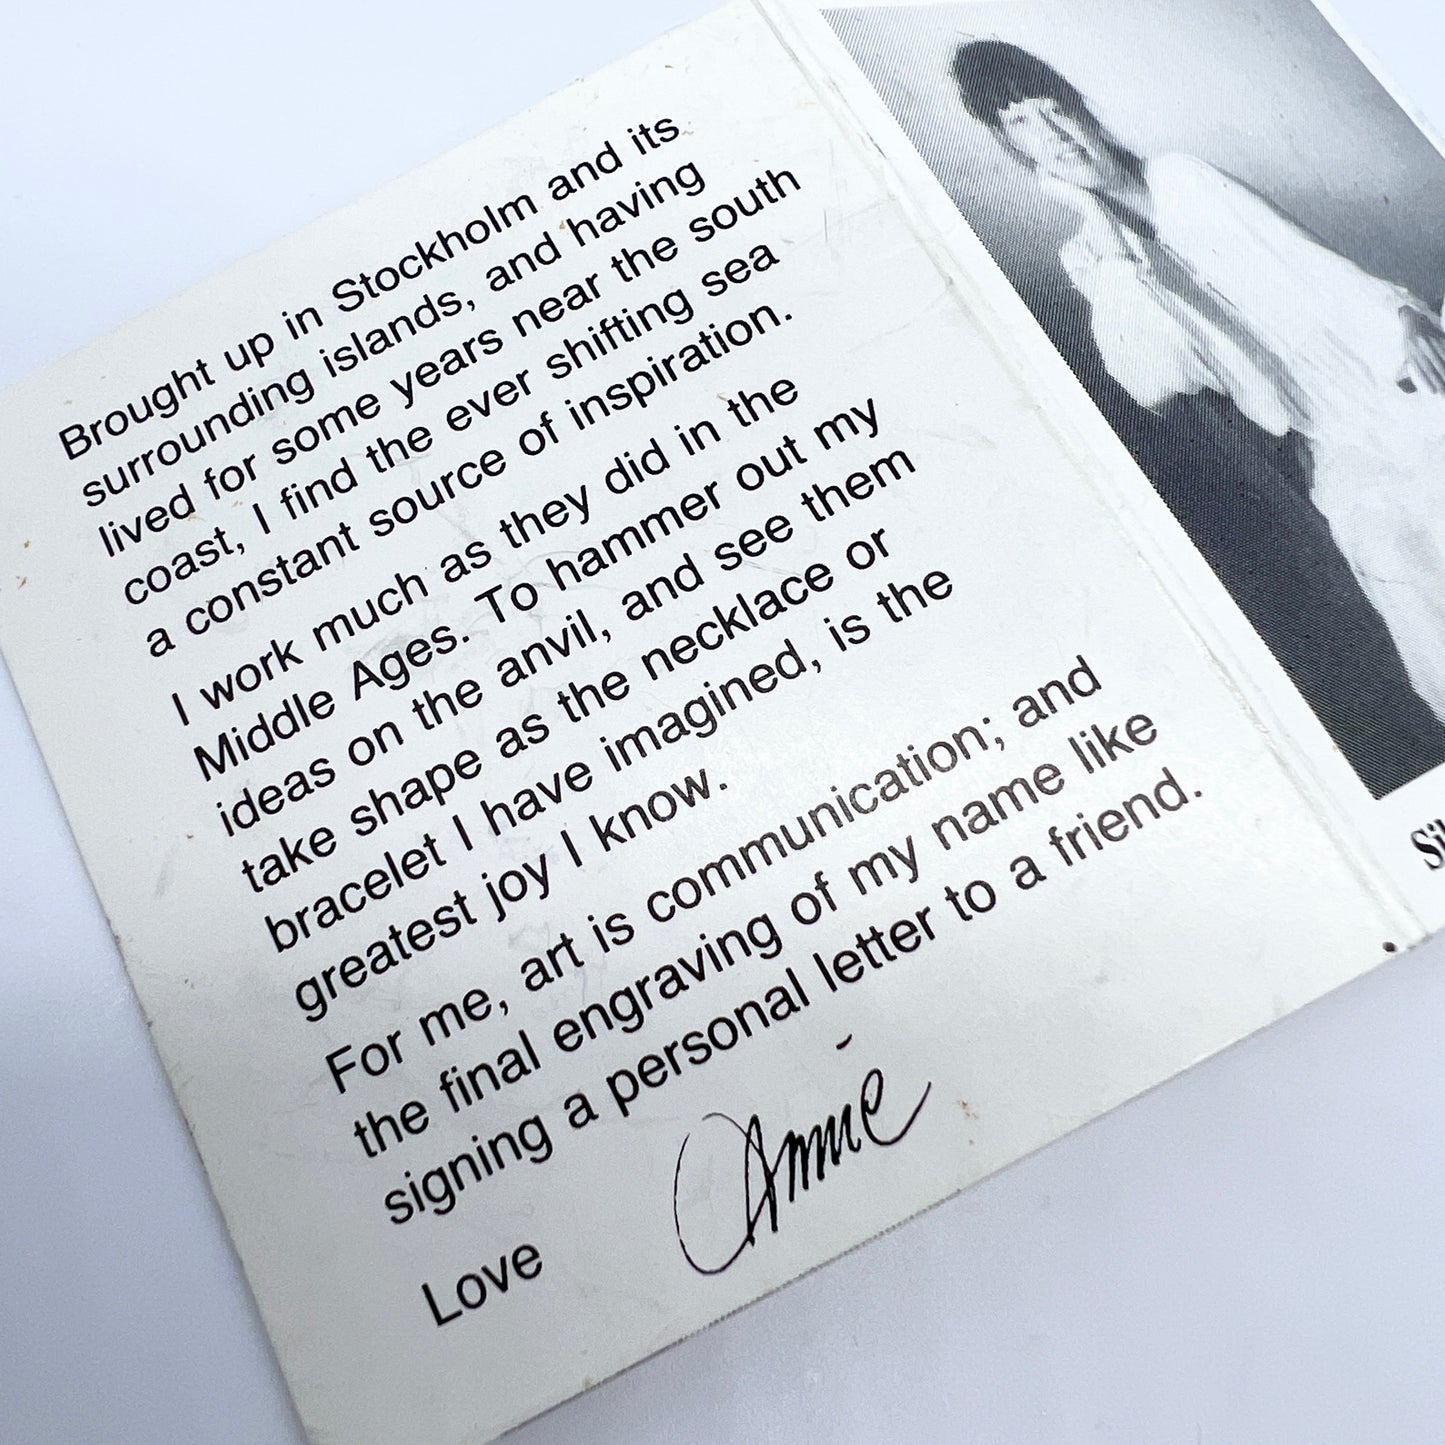 Brought up in Stockholm and its
surrounding islands, and having
lived for some years near the south
coast, I find the ever shifting sea
a constant source of inspiration.
I work much as they did in the
Middle Ages. To hammer out my
ideas on the anvil, and see them
take shape as the necklace or
bracelet I have imagined, is the
greatest joy I know.
For me, art is communication; and
the final engraving of my name like
signing a personal letter to a friend.
Love
Annie